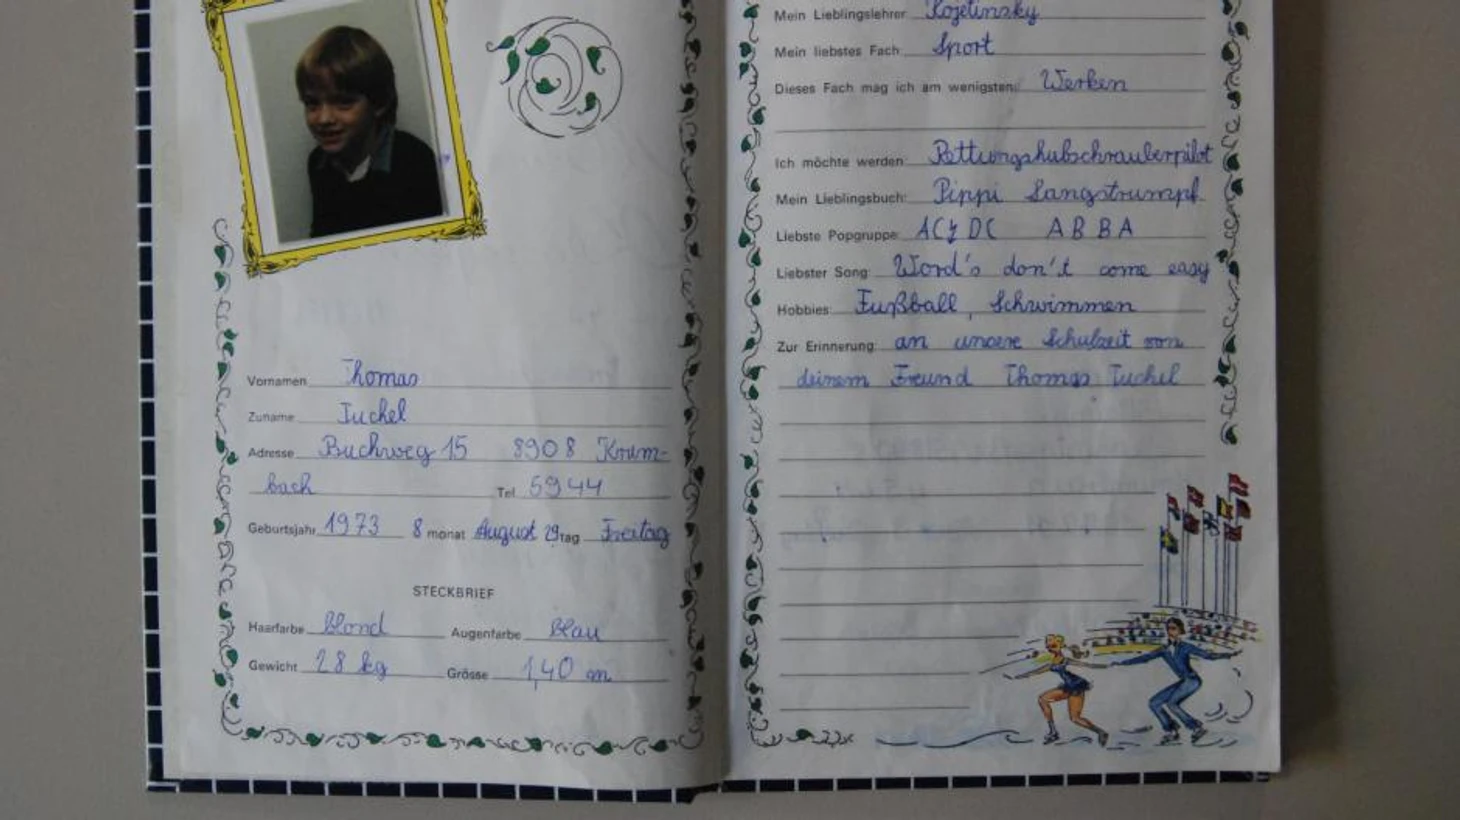 Vornamen Thomas
Zuname Tuchel
Adresse Buchweg 15 8908 Krum-
bach Tel. 5944
Geburtsjahr 1973 8 monat August 29 tag Freitag
STECKBRIEF
Haarfarbe Blond Augenfarbe Blau
Gewicht 28 kg Grösse 1,40 m
Mein Lieblingslehrer Kojetinsky
Mein liebstes Fach: Sport
Dieses Fach mag ich am wenigsten: Werken
Ich möchte werden: Rettungshubschrauberpilot
Mein Lieblingsbuch: Pippi Langstrumpf
Liebste Popgruppe: AC⚡DC ABBA
Liebster Song: Word's don't come easy
Hobbies: Fußball, Schwimmen
Zur Erinnerung: an unsere Schulzeit von
deinem Freund Thomas Tuchel